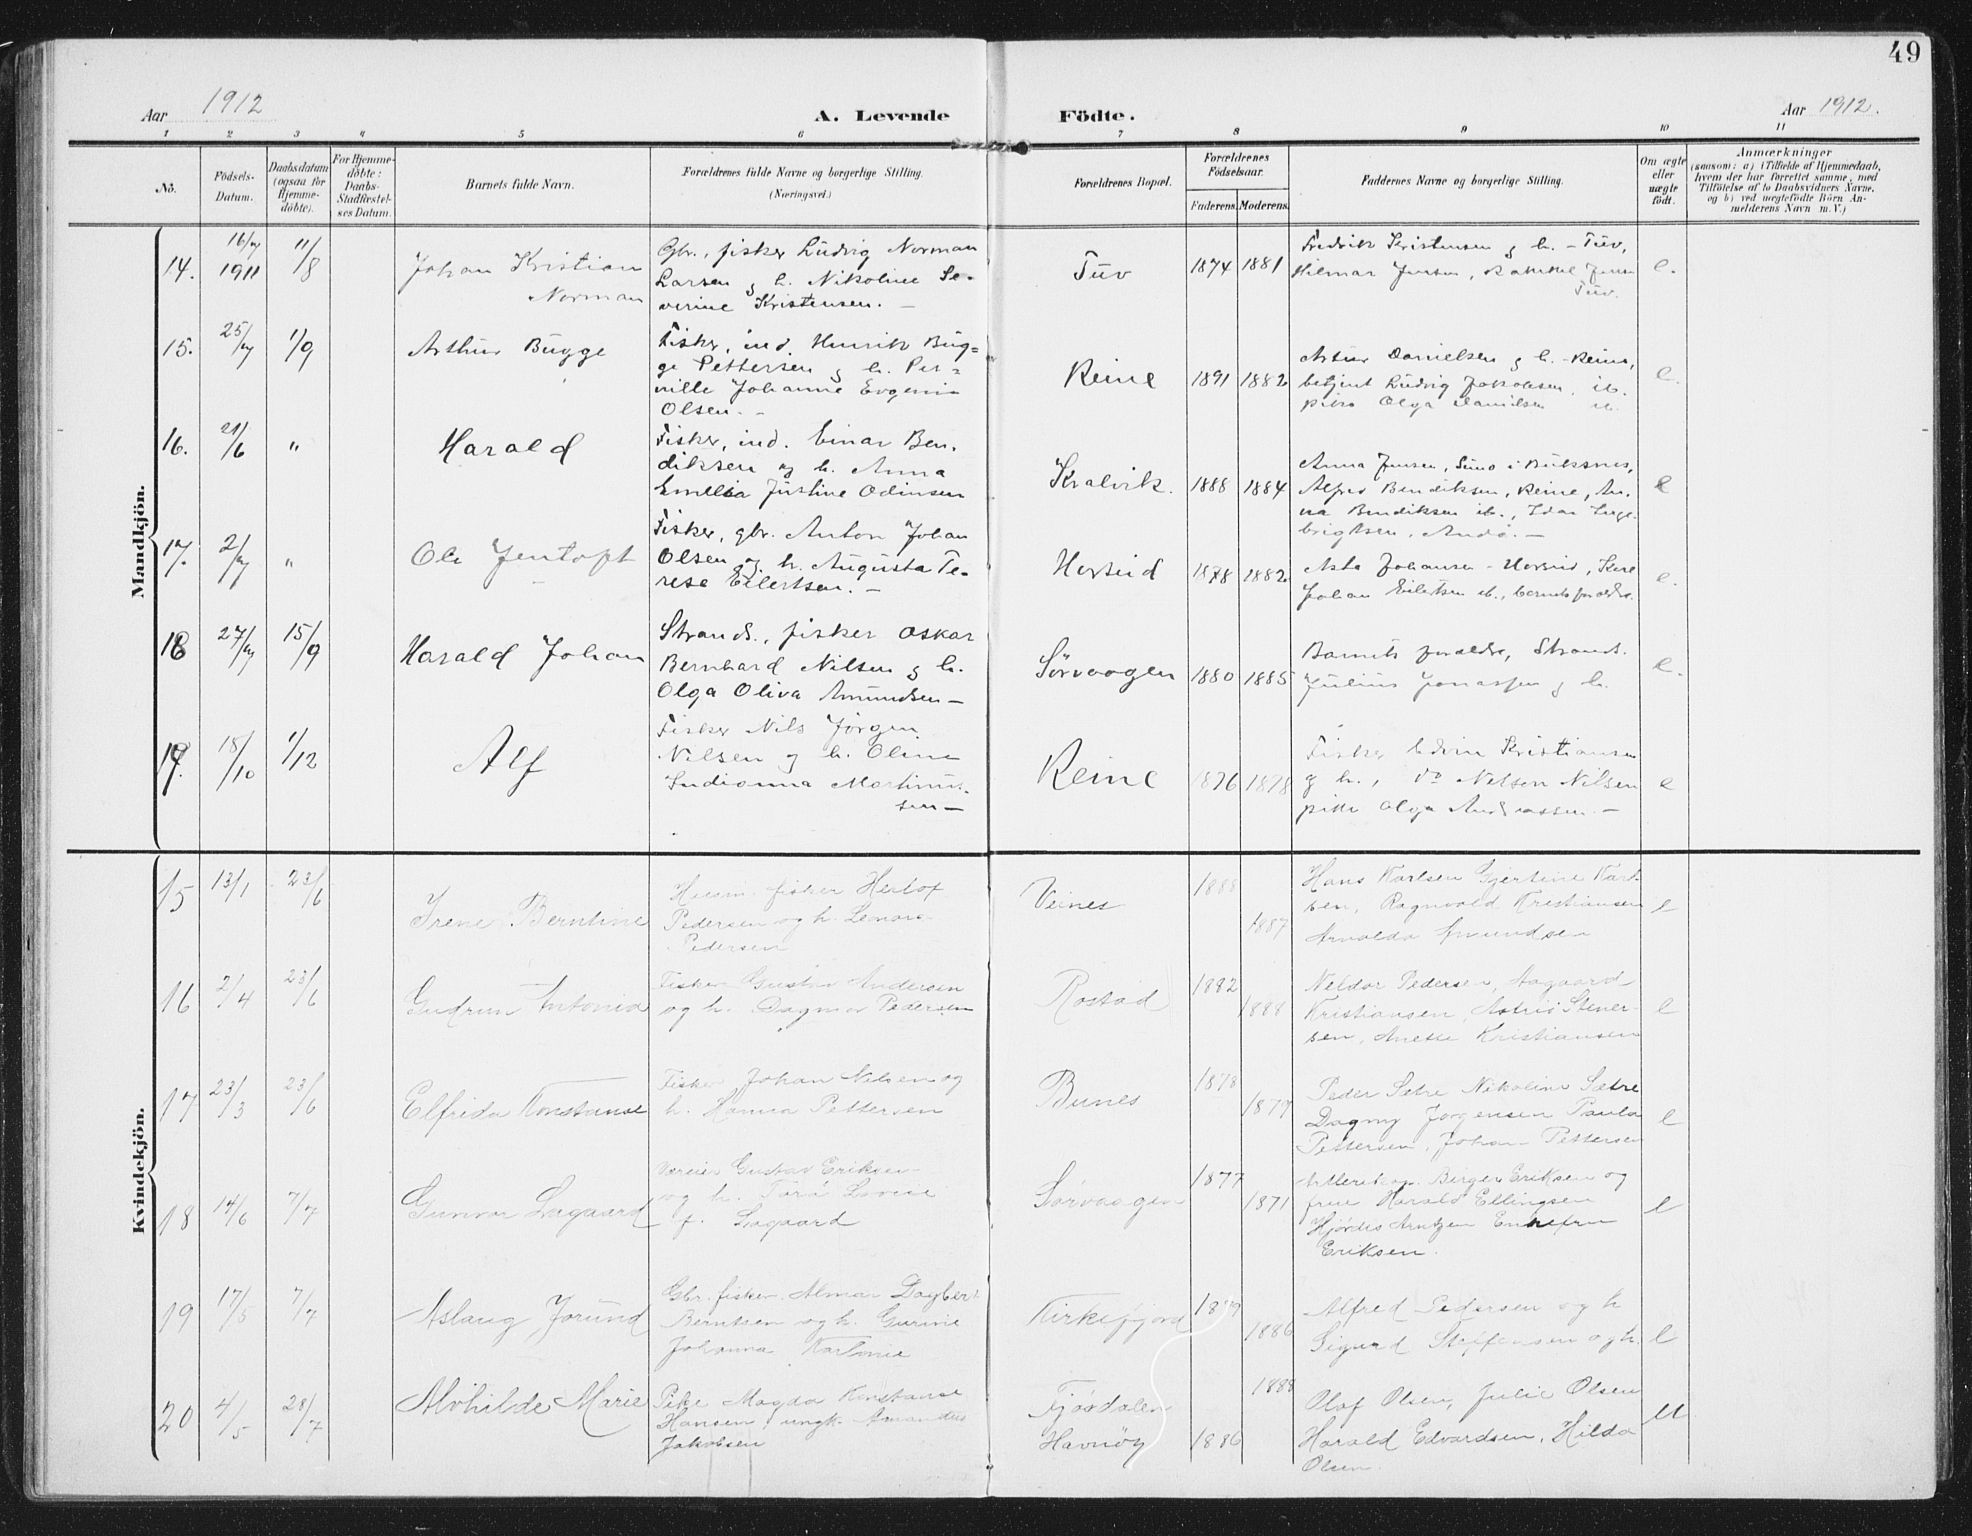 49
Aar 1912
A. Levende Födte.
Aar 1912.
1 2 3 4 5 6 7 8 9 10 11
No.
Födsels-
Datum.
Daabsdatum
(ogsaa for
Hjemme-
döbte).
For Hjemme-
döbte:
Daabs-
Stadfæstel-
ses Datum.
Barnets fulde Navn.
Forældrenes fulde Navne og borgerlige Stilling.
(Næringsvei.)
Forældrenes Bopæl.
Forældrenes
Födselsaar.
Faderens. Moderens.
Faddernes Navne og borgerlige Stilling.
Om ægte
eller
uægte
født.
Anmærkninger
(saasom: a) i Tilfælde af Hjemmedaab,
hvem der har forrettet samme, med
Tilföielse af to Daabsvidners Navne,
og b) ved uægtefödte Börn An-
melderens Navn m. V.)
Mandkjön.
14. 1911 11/8
Johan Kristian
Norman
Gbr., fisker Ludvig Norman
Larsen g h. Nikoline Se-
verine Kristensen. —
Tuv
1874 1881
Fredrik Kristensen g h. – Tuv,
Hilmar Jensen,
Tuv.
e.
15. 1/9
Arthur Bugge
Fisker, ind. Henrik Bug=
ge Pettersen g h. Per=
nille Johanne Evgenie
Olsen. -
Reine
1891 1882
Artur Danielsen g h. – Reine,
betjent Ludvig Jakobsen ib.
pike Olga Danielsen ib.
e.
16. 21/6 "
Harald
Fisker, ind. Einar Ben.
diksen og h. Anna
Emelia Justine Odinsen
Kvalvik.
1888 1884
Anna Jensen, Sund i Buksnes,
Alfred Bendiksen, Reine, An.
na Bendiksen ib., Idar Inge-
brigtsen, Andö. —
e
17. "
Ole Jentoft
Fisker, gbr. Anton Johan
Olsen og h. Augusta Te-
rese Eilertsen. —
Herseid
1878 1882
Asta Johansen – Herseid,
Johan Eilertsen ib., barnets forældre.
e.
18 15/9
Harald Johan
Strands., fisker Oskar
Bernhard Nilsen g h.
Olga Oliva Amundsen —
Sørvaagen
1880 1885
Barnets forældre, Strands.
Julius Jonassen g h.
e.
19. 18/10 1/12
Alf
Fisker Nils Jørgen
Nilsen og h. Oline
Indianna Martinus-
sen —
Reine
1876 1878
Fisker Edvin Kristiansen
g h., do Nelson Nilsen
pike Olga Andreassen. —
e
Kvindekjön.
15 13/1 23/6
Irene Berntine
fisker Herlof
Pedersen og h. Lenore
Pedersen
Veines
1888
1887
Hans Karlsen Gjertine Karl-
sen, Ragnvald Kristiansen
Arnolda Amundsen
e
16 2/4 23/6
Gudrun Antonia
Fisker Gustav Andersen
og h. Dagmar Pedersen
Rostad
1882
1888
Neldor Pedersen, Aagaard
Kristiansen, Astrid Stener-
sen, Anette Kristiansen
e
17 23/3 23/6
Elfrida Konstanse
Fisker Johan Nilsen og
h. Hanna Pettersen
Bunes
1878
1879
Peder Sætre Nikoline Sætre
Dagny Jørgensen Paula
Pettersen, Johan Pettersen
e
18 14/6 7/7
Gunvor Aagaard
Gustav Eriksen
og h. Tora Lovise
f. Aagaard
Sørvaagen
1877
1871
Birger Eriksen og
frue Harald Ellingsen
Hjördis Arntzen Enkefru
Eriksen.
e
19 17/5 7/7
Aslaug Jorund
Gbr. fisker Almar Dagbert
Berntsen og h. Gurine
Johanna Karlonie
Kirkefjord
1879
1886
Alfred Pedersen og h
Sigurd Steffensen og h.
e
20 4/5 28/7
Alvhilde Marie
Pike Magda Konstanse
Hansen, ungk. Amandus
Jakobsen
Fjørdalen
Havnøy
1888
1886
Olaf Olsen, Julie Olsen
Harald Edvardsen, Hilda
Olsen
u